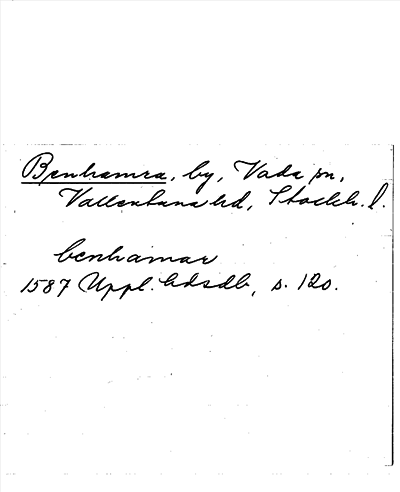 Benhamra, by, Vada sn,
Vallentuna hd, Stockh. l.
benhamar
1587 Uppl. hdsdb, s. 120.